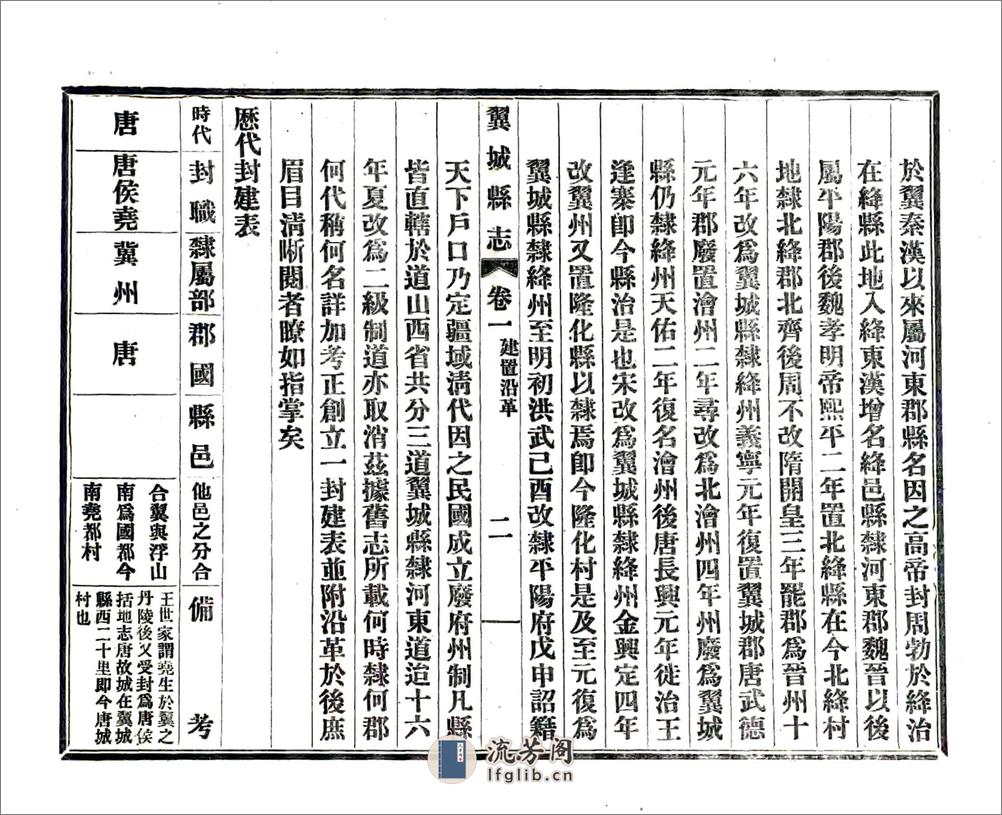 於翼秦漢以來屬河東郡縣名因之高帝封周勃於絳治
在絳縣此地入絳東漢增名絳邑縣隸河東郡魏晉以後
屬平陽郡後魏孝明帝熙平二年置北絳縣在今北絳村
地隸北絳郡北齊後周不改隋開皇三年罷郡為晉州十
六年改為翼城縣隸絳州義寧元年復置翼城郡唐武德
元年郡廢置澮州二年尋改為北澮州四年州廢為翼城
縣仍隸絳州天佑二年復名澮州後唐長興元年徙治王
逢寨即今縣治是也宋改為翼城縣隸絳州金興定四年
改翼州又置隆化縣以隸焉卽今隆化村是及至元復為
翼城縣隸絳州至明初洪武己酉改隸平陽府戊申詔籍
翼城縣志 卷一 建置沿革 二
天下戶口乃定疆域清代因之民國成立廢府州制凡縣
皆直轄於道山西省共分三道翼城縣隸河東道迨十六
年夏改為二級制道亦取消茲據舊志所載何時隸何郡
何代稱何名詳加考正創立一封建表並附沿革於後庶
眉目清晰閱者瞭如指掌矣
歷代封建表
時代 封職 隸屬部 郡國 縣邑 他邑之分合 備考
唐 唐侯堯 冀州 唐
合翼與浮山
南為國都今
南堯都村
王世家謂堯生於翼之
丹陵後又受封為唐侯
括地志唐故城在翼城
縣西二十里即今唐城
村也
流芳阁
lfglib.cn